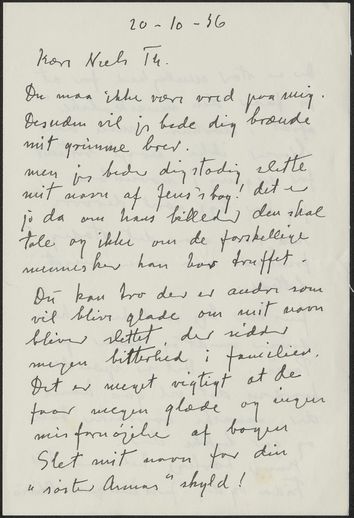 20-10-36
Kære Niels Th.
Du maa ikke være vred paa mig.
Desuden vil jeg bede dig brænde
mit grimme brev.
men jeg beder dig stadig slette
mit navn af Jens's bog! det er
jo da om hans billeder den skal
tale og ikke om de forskellige
mennesker han har truffet.
Du kan tro der er andre som
vil blive glade om mit navn
bliver slettet, der sidder
megen bitterhed i familien.
Det er meget vigtigt at de
faar megen glæde og ingen
misfornøjelse af bogen
Slet mit navn for din
"søster Annas" skyld!